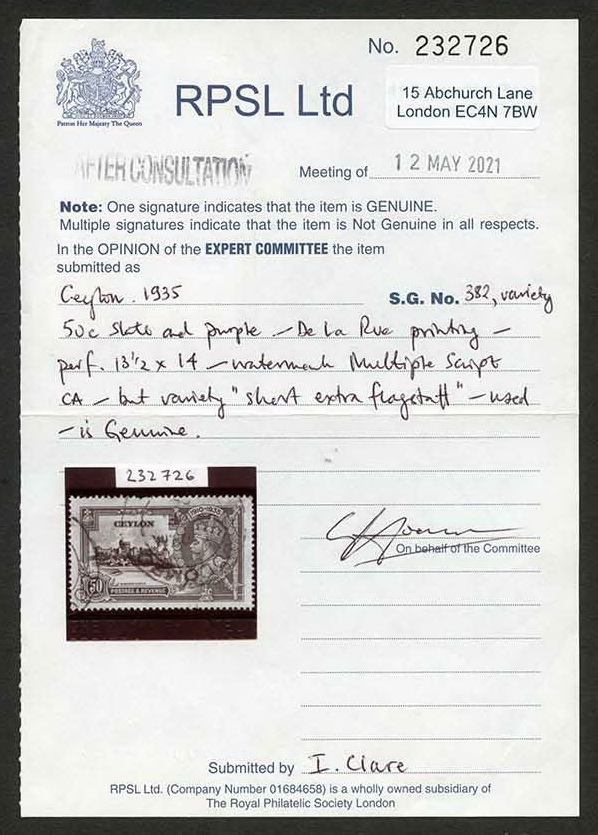 No. 232726
RPSL Ltd
15 Abchurch Lane
London EC4N 7BW
Patron Her Majesty The Queen
AFTER CONSULTATION
Meeting of 12 MAY 2021
Note: One signature indicates that the item is GENUINE.
Multiple signatures indicate that the item is Not Genuine in all respects.
In the OPINION of the EXPERT COMMITTEE the item
submitted as
Ceylon. 1935 S.G. No. 382, variety
50c slate and purple – De La Rue printing –
perf. 13½ x 14 – watermark Multiple Script
CA – but variety "short extra flagstaff" – used
– is Genuine.
232726
1910-1935
CEYLON
50
POSTAGE & REVENUE
On behalf of the Committee
Submitted by I. Clare
RPSL Ltd. (Company Number 01684658) is a wholly owned subsidiary of
The Royal Philatelic Society London